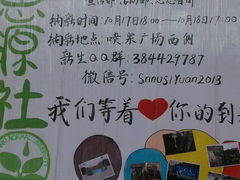 思源社
纳新时间:10月17日18:00——10月18日17:00
纳新地点:喷泉广场西侧
新生QQ群:384429787
微信号:SnnusiYuan2013
我们等着❤你的到